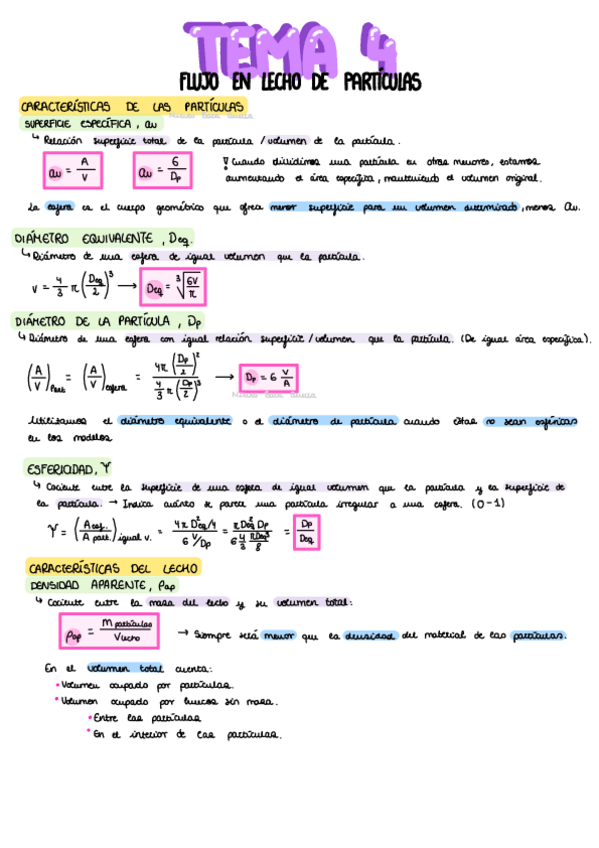 TEMA 4
FLUJO EN LECHO DE PARTÍCULAS
CARACTERÍSTICAS DE LAS PARTÍCULAS
SUPERFICIE ESPECÍFICA, av
↳ Relación superficie total de la partícula / volumen de la partícula.
av = A/V    av = 6/Dp
! Cuando dividimos una partícula en otras menores, estamos
aumentando el área específica, manteniendo el volumen original.
La esfera es el cuerpo geométrico que ofrece menor superficie para un volumen determinado, menor av.
DIÁMETRO EQUIVALENTE, Deq.
↳ Diámetro de una esfera de igual volumen que la partícula.
V = 4/3 π (Deq/2)³ → Deq = ³√(6V/π)
DIÁMETRO DE LA PARTÍCULA, Dp
↳ Diámetro de una esfera con igual relación superficie / volumen que la partícula. (De igual área específica).
(A/V)part = (A/V)esfera = 4π (Dp/2)² / 4/3 π (Dp/2)³ → Dp = 6 V/A
Utilizamos el diámetro equivalente o el diámetro de partícula cuando éstas no sean esféricas
en los modelos
ESFERICIDAD, Ψ
↳ Cociente entre la superficie de una esfera de igual volumen que la partícula y la superficie de
la partícula. → Indica cuánto se parece una partícula irregular a una esfera. (0-1)
Ψ = (A esf. / A part.) igual v. = 4π D²eq/4 / 6 V/Dp = π Deq² Dp / 6 4/3 πDeq³/8 = Dp/Deq
CARACTERÍSTICAS DEL LECHO
DENSIDAD APARENTE, ρap
↳ Cociente entre la masa del lecho y su volumen total:
ρap = m partículas / V lecho → Siempre será menor que la densidad del material de las partículas.
En el volumen total cuenta:
• Volumen ocupado por partículas.
• Volumen ocupado por huecos sin masa.
• Entre las partículas
• En el interior de las partículas.